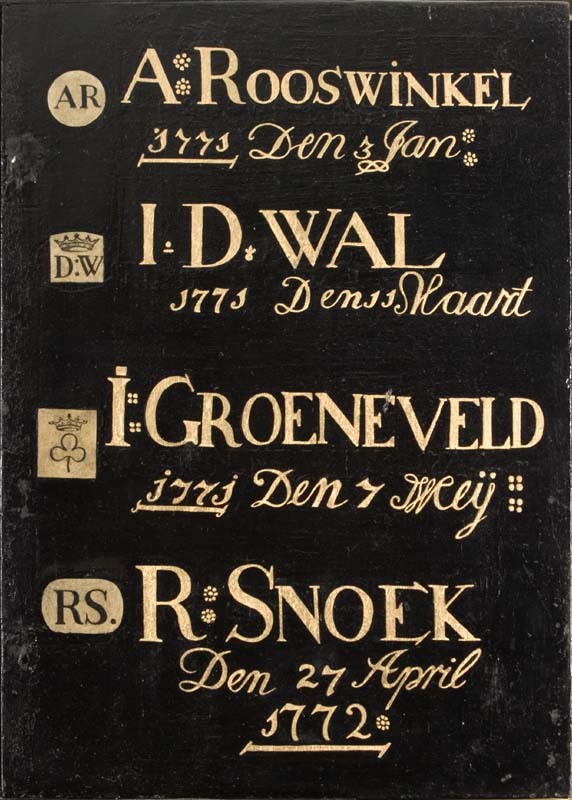 AR
A:ROOSWiNKEL
1771 Den 3 Jan:
D:W
I·D·WAL
1771 Den 11 Maart
I:GROENEVELD
1771 Den 7 Meÿ
RS.
R:SNOEK
Den 27 April
1772